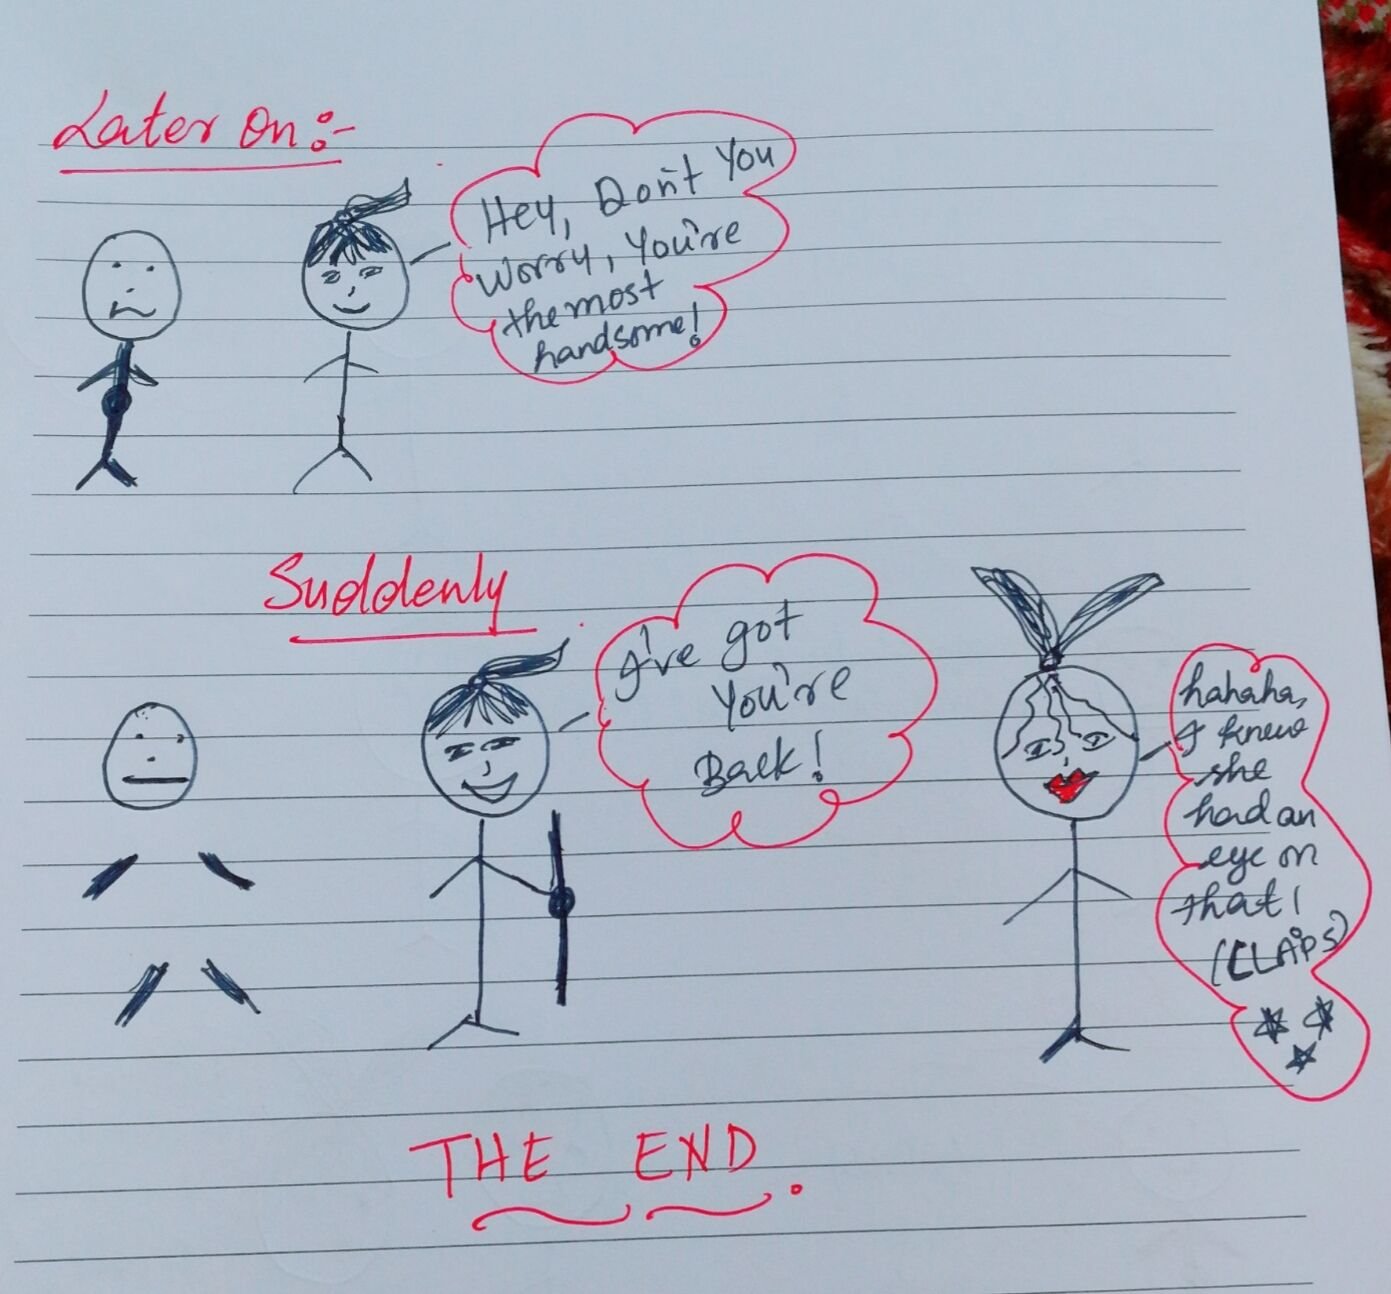 Later On:-
Hey, Don't You
Worry, You're
the most
handsome!
Suddenly
I've got
You're
Back!
hahaha,
I knew
she
had an
eye on
that!
(CLAPS)
THE END.